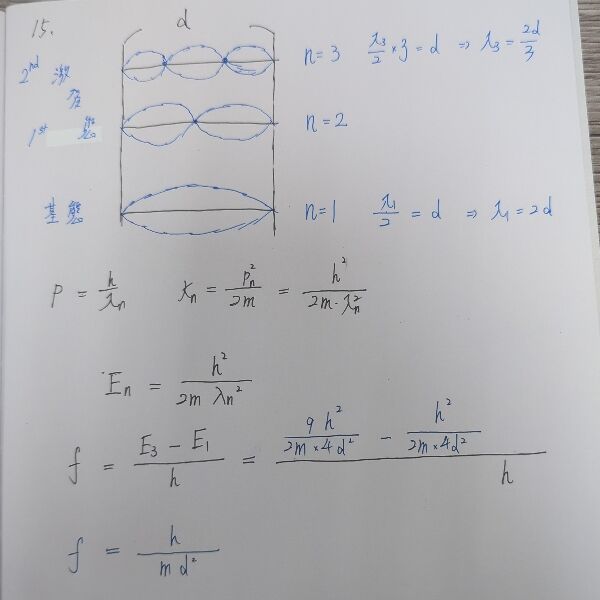 15.
d
2nd 激發 n=3 λ3/2 × 3 = d ⇒ λ3 = 2d/3
1st 態 n=2
基態 n=1 λ1/2 = d ⇒ λ1 = 2d
P = h/λn Kn = Pn²/2m = h²/2m·λn²
En = h²/2m λn²
f = E3 - E1/h = 9h²/2m×4d² - h²/2m×4d²/h
f = h/md²